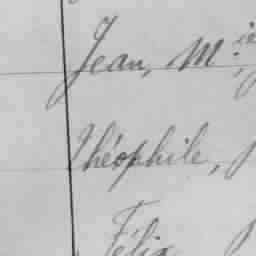 Jean, Mie
Théophile,
Félix